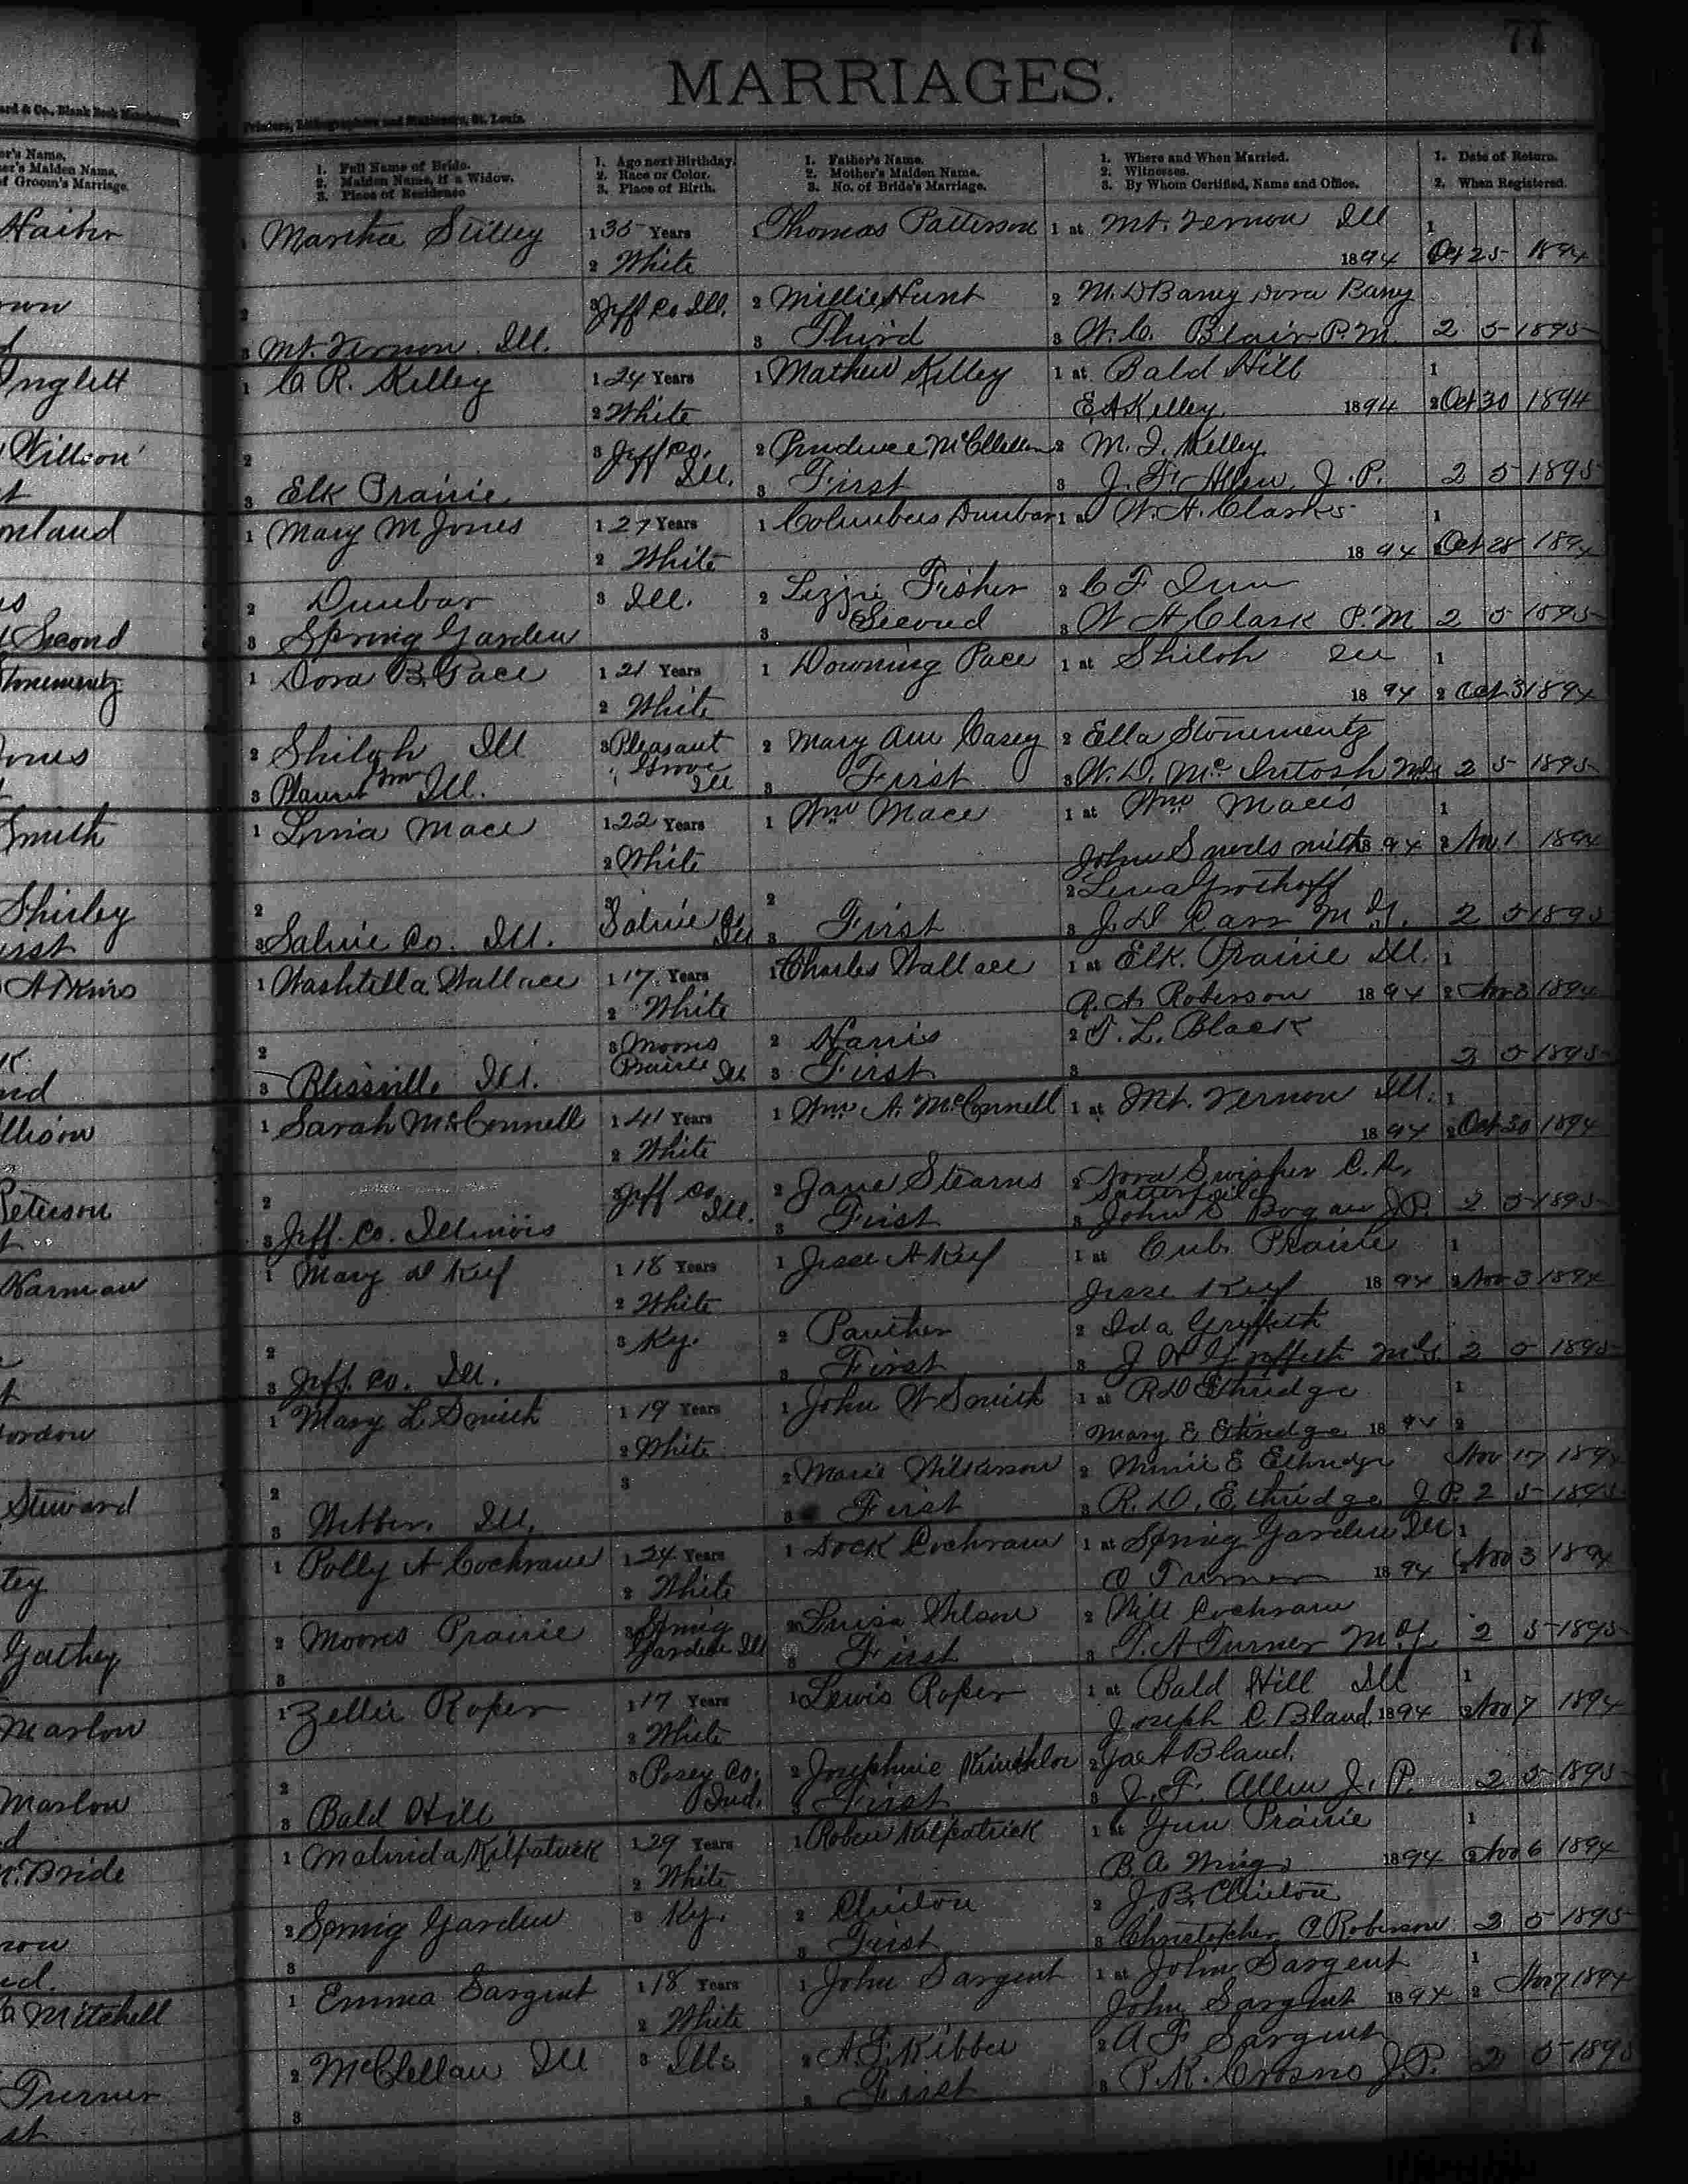 77
MARRIAGES.
ard & Co., Blank Book
Printers, Lithographers and Stationers, St. Louis.
er's Name.
er's Maiden Name.
of Groom's Marriage.
1. Full Name of Bride.
2. Maiden Name, if a Widow.
3. Place of Residence
1. Age next Birthday.
2. Race or Color.
3. Place of Birth.
1. Father's Name.
2. Mother's Maiden Name.
3. No. of Bride's Marriage.
1. Where and When Married.
2. Witnesses.
3. By Whom Certified, Name and Office.
1. Date of Return.
2. When Registered.
Martha Stilley 1 35 Years Thomas Patterson 1 at Mt. Vernon Ill 1
2 White 1894 Oct 25 1894
2 Jeff Co Ill. 2 Millie Hunt 2 M. D Barry Dora Barry
3 Mt. Vernon. Ill. 3 Third 3 W. C. Blair P. M. 2 5 1895
1 C. R. Kelley 1 24 Years 1 Mathew Kelley 1 at Bald Hill 1
2 White E A Kelley 1894 2 Oct 30 1894
2 3 Jeff Co. Ill. 2 2 M. J. Kelley
3 Elk Prairie 3 First 3 J. F. Allen, J. P. 2 5 1895
1 Mary M Jones 1 27 Years 1 Columbus Dunbar 1 at W. H. Clarks 1
2 White 1894 Oct 28 1894
2 Dunbar 3 Ill. 2 Lizzie Fisher 2 C F
3 Spring Garden 3 Second 3 W H Clark P. M 2 5 1895
1 Dora B. Pace 1 21 Years 1 Downing Pace 1 at Shiloh Ill 1
2 White 1894 2 Oct 31 1894
2 Shiloh Ill 3 Pleasant Grove Ill 2 Mary Ann Casey 2 Ella Stonementz
3 Ill. 3 First 3 W. D. McIntosh 2 5 1895
1 Mace 1 22 Years 1 Wm Mace 1 at Wm Mace's 1
2 White John 1894 2 Nov 1 1894
2 3 Saline Co Ill 2 2 Lena
3 Saline Co. Ill. 3 First 3 J. D Carr M G. 2 5 1895
1 Washtella Wallace 1 17 Years 1 Charles Wallace 1 at Elk Prairie Ill. 1
2 White R. A. Roberson 1894 2 Nov 3 1894
2 3 Moores Prairie Ill 2 Harris 2 T. L. Black
3 Blissville Ill. 3 First 3 2 5 1895
1 Sarah McConnell 1 41 Years 1 Wm A. McConnell 1 at Mt. Vernon Ill. 1
2 White 1894 2 Oct 30 1894
2 3 Jeff Co Ill. 2 Jane Stearns 2 Nora Swisher C. A. Satterfield
3 Jeff. Co. Illinois 3 First 3 John S Bogan J P. 2 5 1895
1 Mary D Key 1 18 Years 1 Jesse A Key 1 at Cub Prairie 1
2 White Jesse Key 1894 2 Nov 3 1894
2 3 Ky. 2 Panther 2 Ida Griffith
3 Jeff. Co. Ill. 3 First 3 J W Griffith M G. 2 5 1895
1 Mary L Smith 1 19 Years 1 John W Smith 1 at R D Ethridge 1
2 White Mary E Ethridge 1894 2
2 3 2 Marie Wilkinson 2 Minnie E Ethridge Nov 17 1894
3 Webber. Ill. 3 First 3 R. D. Ethridge J. P. 2 5 1895
1 Polly A Cochrane 1 24 Years 1 Dock Cochrane 1 at Spring Garden Ill 1
2 White O Turner 1894 Nov 3 1894
2 Moores Prairie 3 Spring Garden Ill 2 Luisa Wilson 2 Will Cochrane
3 3 First 3 T. A Turner M G 2 5 1895
1 Zellie Roper 1 17 Years 1 Lewis Roper 1 at Bald Hill Ill 1
2 White Joseph C. Bland. 1894 2 Nov 7 1894
2 3 Posey Co. Ind. 2 Josephine 2 Jas A Bland.
3 Bald Hill 3 First 3 J. F. Allen J. P. 2 5 1895
1 Malinda Kilpatrick 1 29 Years 1 Robert Kilpatrick 1 at Gun Prairie 1
2 White B. A. 1894 2 Nov 6 1894
2 Spring Garden 3 Ky. 2 Clinton 2 J. B. Clinton
3 3 First 3 Christopher C Robinson 2 5 1895
1 Emma Sargent 1 18 Years 1 John Sargent 1 at John Sargent 1
2 White John Sargent 1894 2 Nov 7 1894
2 McClellan Ill 3 Ills 2 A. F. Kibber 2 A F Sargent
3 3 First 3 P. K. Crosno J. P. 2 5 1895